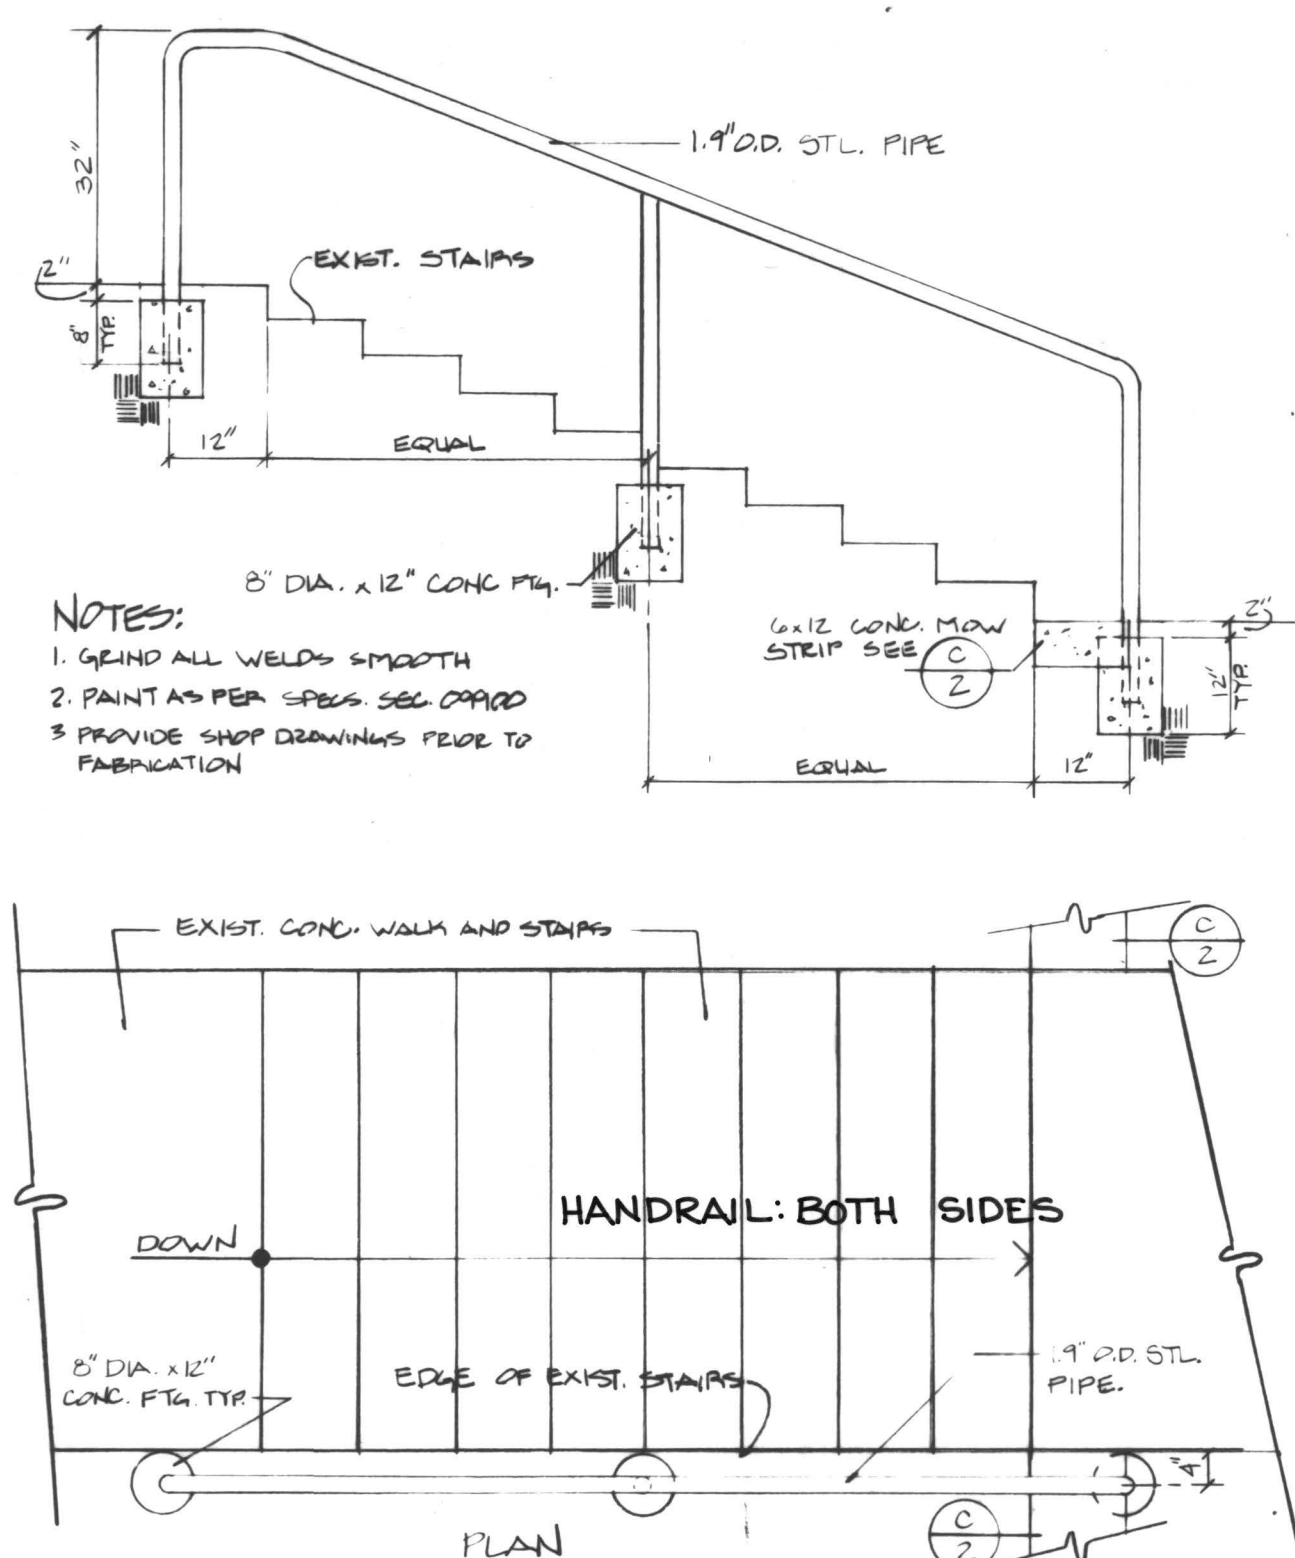 1.9" O.D. STL. PIPE
32"
EXIST. STAIRS
2"
8"
TYP.
12"
EQUAL
8" DIA. x 12" CONC FTG.
NOTES:
1. GRIND ALL WELDS SMOOTH
2. PAINT AS PER SPECS. SEC. 09900
3 PROVIDE SHOP DRAWINGS PRIOR TO
FABRICATION
6x12 CONC. MOW
STRIP SEE
C
2
2"
12"
TYP.
EQUAL
12"
EXIST. CONC. WALK AND STAIRS
C
2
HANDRAIL: BOTH SIDES
DOWN
8" DIA. x 12"
CONC. FTG. TYP.
EDGE OF EXIST. STAIRS
1.9" O.D. STL.
PIPE.
4"
PLAN
C
2